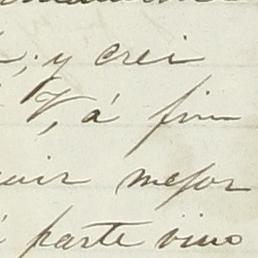 ; y crei
V, á fin
uir mejor
parte vino